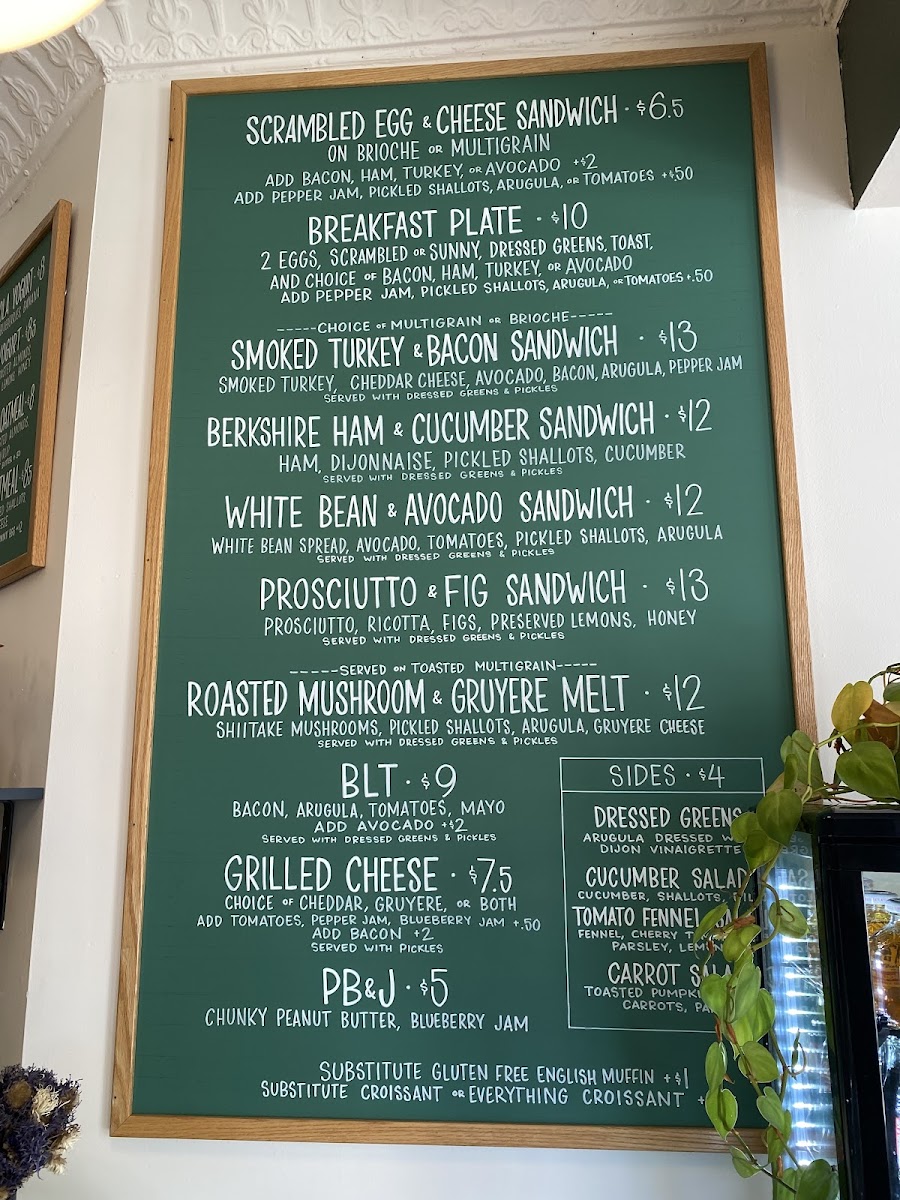 SCRAMBLED EGG & CHEESE SANDWICH · $6.5
ON BRIOCHE OR MULTIGRAIN
ADD BACON, HAM, TURKEY, OR AVOCADO +$2
ADD PEPPER JAM, PICKLED SHALLOTS, ARUGULA, OR TOMATOES +$.50
BREAKFAST PLATE · $10
2 EGGS, SCRAMBLED OR SUNNY, DRESSED GREENS, TOAST,
AND CHOICE OF BACON, HAM, TURKEY, OR AVOCADO
ADD PEPPER JAM, PICKLED SHALLOTS, ARUGULA, OR TOMATOES +.50
-----CHOICE OF MULTIGRAIN OR BRIOCHE-----
SMOKED TURKEY & BACON SANDWICH · $13
SMOKED TURKEY, CHEDDAR CHEESE, AVOCADO, BACON, ARUGULA, PEPPER JAM
SERVED WITH DRESSED GREENS & PICKLES
BERKSHIRE HAM & CUCUMBER SANDWICH · $12
HAM, DIJONNAISE, PICKLED SHALLOTS, CUCUMBER
SERVED WITH DRESSED GREENS & PICKLES
WHITE BEAN & AVOCADO SANDWICH · $12
WHITE BEAN SPREAD, AVOCADO, TOMATOES, PICKLED SHALLOTS, ARUGULA
SERVED WITH DRESSED GREENS & PICKLES
PROSCIUTTO & FIG SANDWICH · $13
PROSCIUTTO, RICOTTA, FIGS, PRESERVED LEMONS, HONEY
SERVED WITH DRESSED GREENS & PICKLES
-----SERVED ON TOASTED MULTIGRAIN-----
ROASTED MUSHROOM & GRUYERE MELT · $12
SHIITAKE MUSHROOMS, PICKLED SHALLOTS, ARUGULA, GRUYERE CHEESE
SERVED WITH DRESSED GREENS & PICKLES
BLT · $9
BACON, ARUGULA, TOMATOES, MAYO
ADD AVOCADO +$2
SERVED WITH DRESSED GREENS & PICKLES
GRILLED CHEESE · $7.5
CHOICE OF CHEDDAR, GRUYERE, OR BOTH
ADD TOMATOES, PEPPER JAM, BLUEBERRY JAM +.50
ADD BACON +2
SERVED WITH PICKLES
PB&J · $5
CHUNKY PEANUT BUTTER, BLUEBERRY JAM
SIDES · $4
DRESSED GREENS
ARUGULA DRESSED
DIJON VINAIGRETTE
CUCUMBER SALAD
CUCUMBER, SHALLOTS,
TOMATO FENNEL
FENNEL, CHERRY
PARSLEY,
CARROT
TOASTED
CARROTS,
SUBSTITUTE GLUTEN FREE ENGLISH MUFFIN +$1
SUBSTITUTE CROISSANT OR EVERYTHING CROISSANT +
YOGURT · $8
OATMEAL · $8